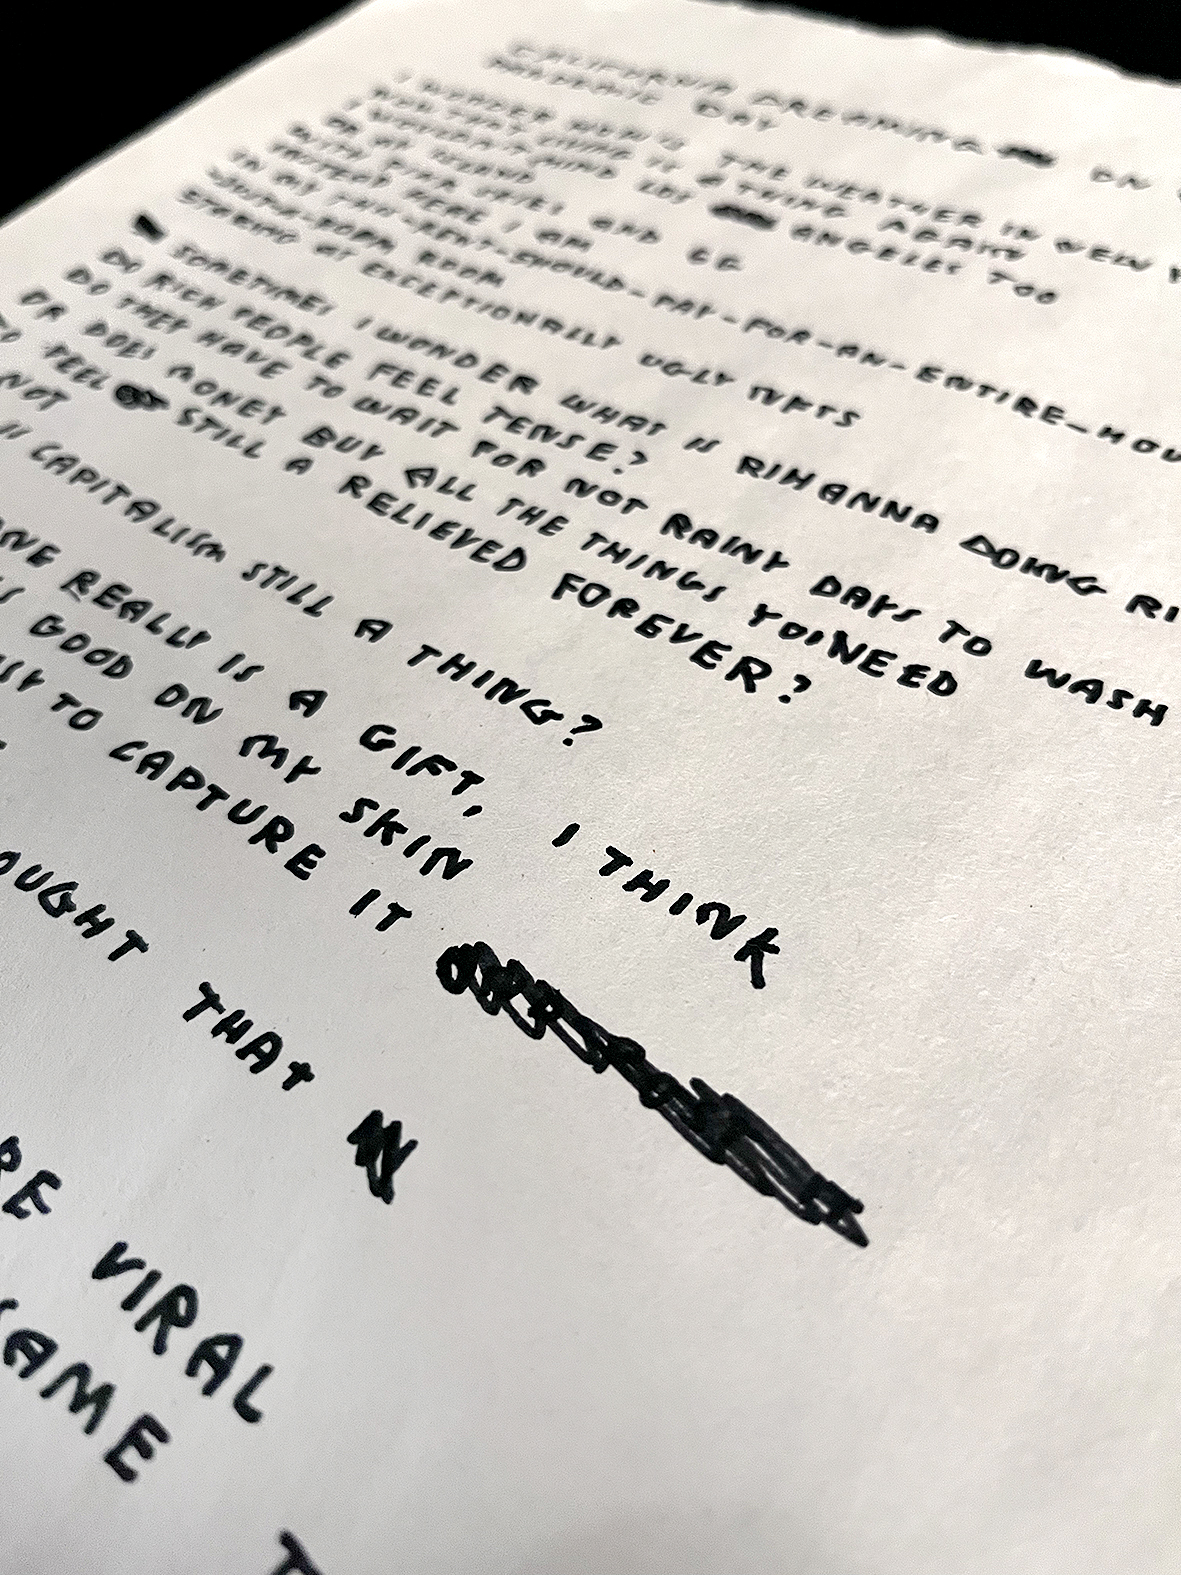 CALIFORNIA DREAMING ON
PANDEMIC DAY
I WONDER HOW'S THE WEATHER IN NEW
NOW THAT LIVING IS A THING AGAIN
I WOULDN'T MIND LOS ANGELES TOO
OR AN ISLAND
WITH STAR SKIES AND
INSTEAD HERE I AM
IN MY THIS-RENT-SHOULD-PAY-FOR-AN-ENTIRE-HOU
SOUTH-BORN ROOM
STARING AT EXCEPTIONALLY UGLY
SOMETIMES I WONDER WHAT IS RIHANNA DOING RI
DO RICH PEOPLE FEEL TENSE?
DO THEY HAVE TO WAIT FOR NOT RAINY DAYS TO WASH
OR DOES MONEY BUY ALL THE THINGS YOU NEED
TO FEEL STILL A RELIEVED FOREVER?
NOT
IS CAPITALISM STILL A THING?
REALLY IS A GIFT, I THINK
GOOD ON MY SKIN
TO CAPTURE IT
OUGHT THAT
RE VIRAL
SAME